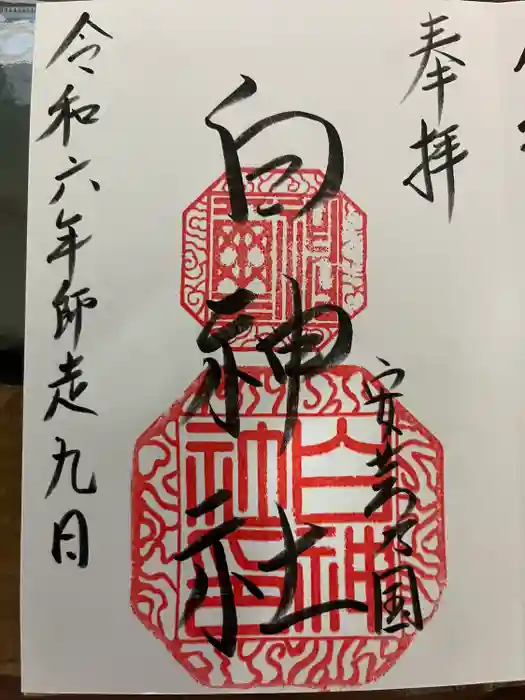 奉拝
安芸乃国
白神社
白神社印
令和六年師走九日